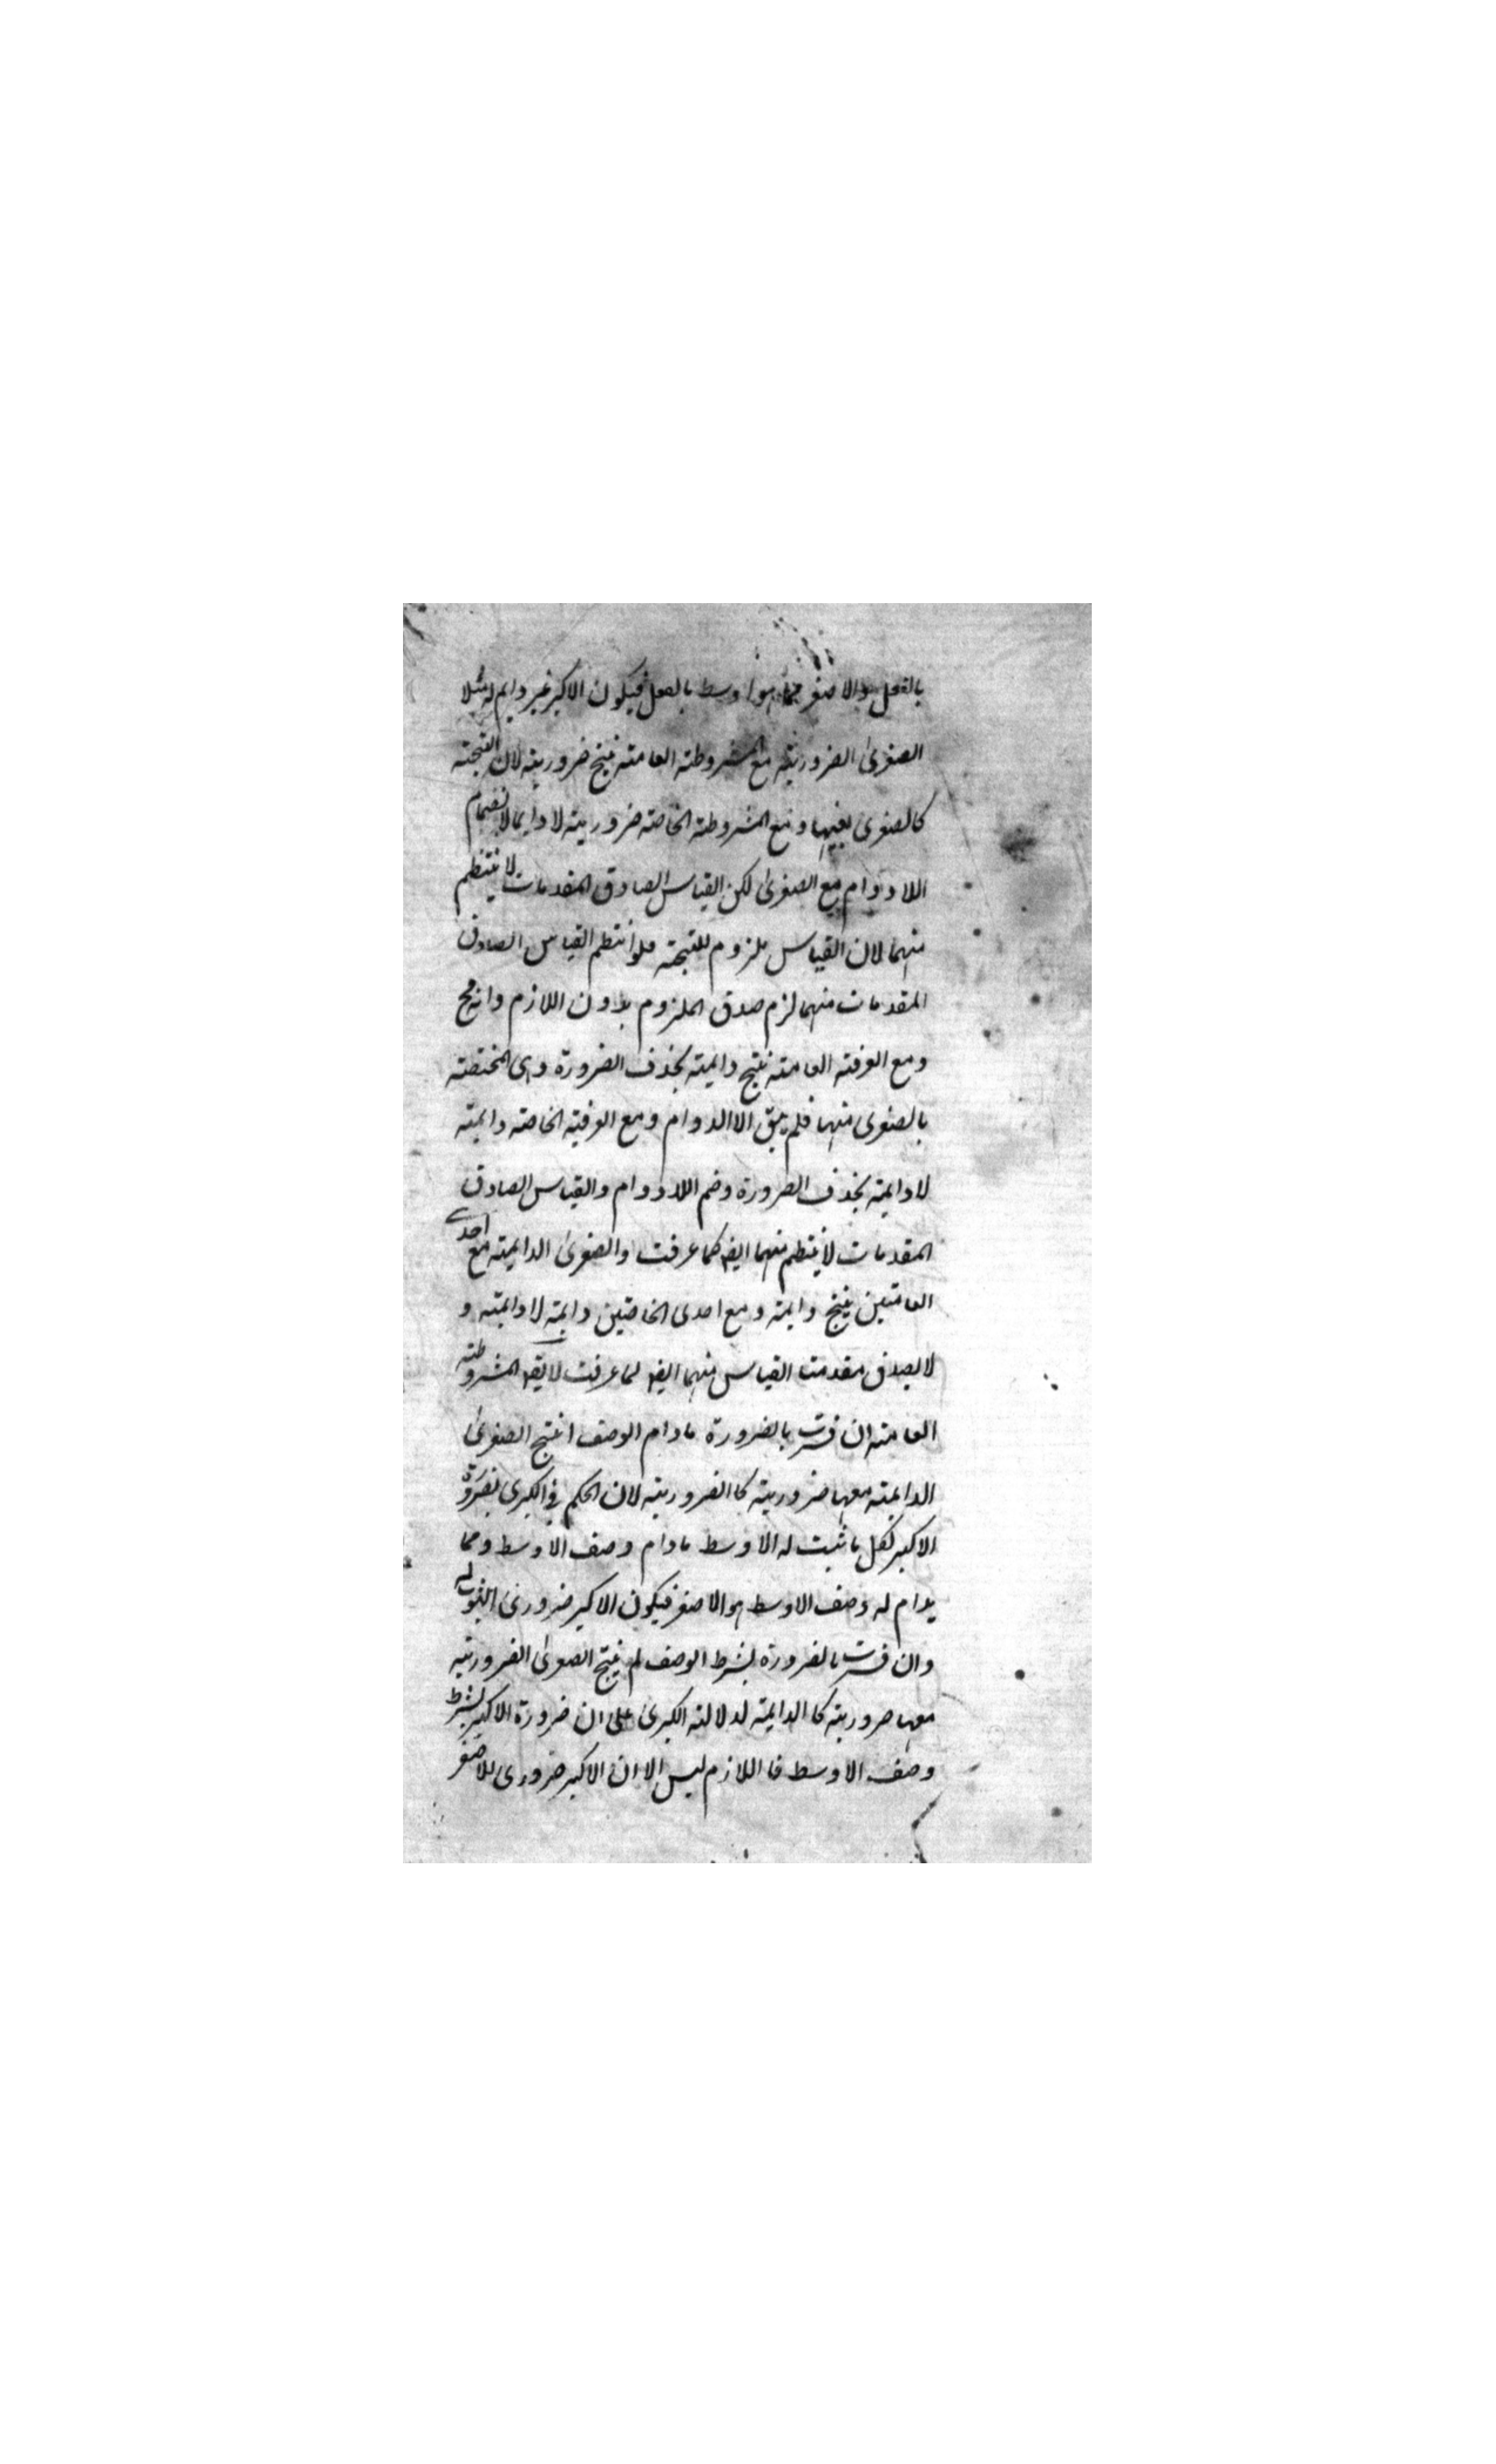 بالفعل والاصغر مما هو اوسط بالفعل فيكون الاكبر غير دايم له مثلا
الصغرى الضرورية مع المشروطة العامة ينتج ضرورية لان النتيجة
كالصغرى بعينها ومع المشروطة الخاصة ضرورية لا دايما لانضمام
اللادوام مع الصغرى لكن القياس الصادق المقدمات لا ينتظم
منهما لان القياس ملزوم للنتيجة فلو انتظم القياس الصادق
المقدمات منهما لزم صدق الملزوم بدون اللازم وانه مح
ومع العرفية العامة ينتج دايمة بحذف الضرورة وهى المختصة
بالصغرى منها فلم يبق الا الدوام ومع العرفية الخاصة دايمة
لا دايمة بحذف الضرورة وضم اللادوام والقياس الصادق
المقدمات لا ينتظم منهما ايضه كما عرفت والصغرى الدايمة مع احدى
العامتين ينتج دايمة ومع احدى الخاصتين دايمة لا دايمة و
لا يصدق مقدمتا القياس منهما ايضه لما عرفت لا يقه المشروطة
العامة ان فسرت بالضرورة مادام الوصف انتج الصغرى
الدايمة معها ضرورية كالضرورية لان الحكم فى الكبرى بضرورة
الاكبر لكل ما ثبت له الاوسط مادام وصف الاوسط ومما
يدام له وصف الاوسط هو الاصغر فيكون الاكبر ضرورى الثبوت له
وان فسرت بالضرورة بشرط الوصف لم ينتج الصغرى الضرورية
معها ضرورية كالدايمة لدلالة الكبرى على ان ضرورة الاكبر بشرط
وصف الاوسط فاللازم ليس الا ان الاكبر ضرورى للاصغر